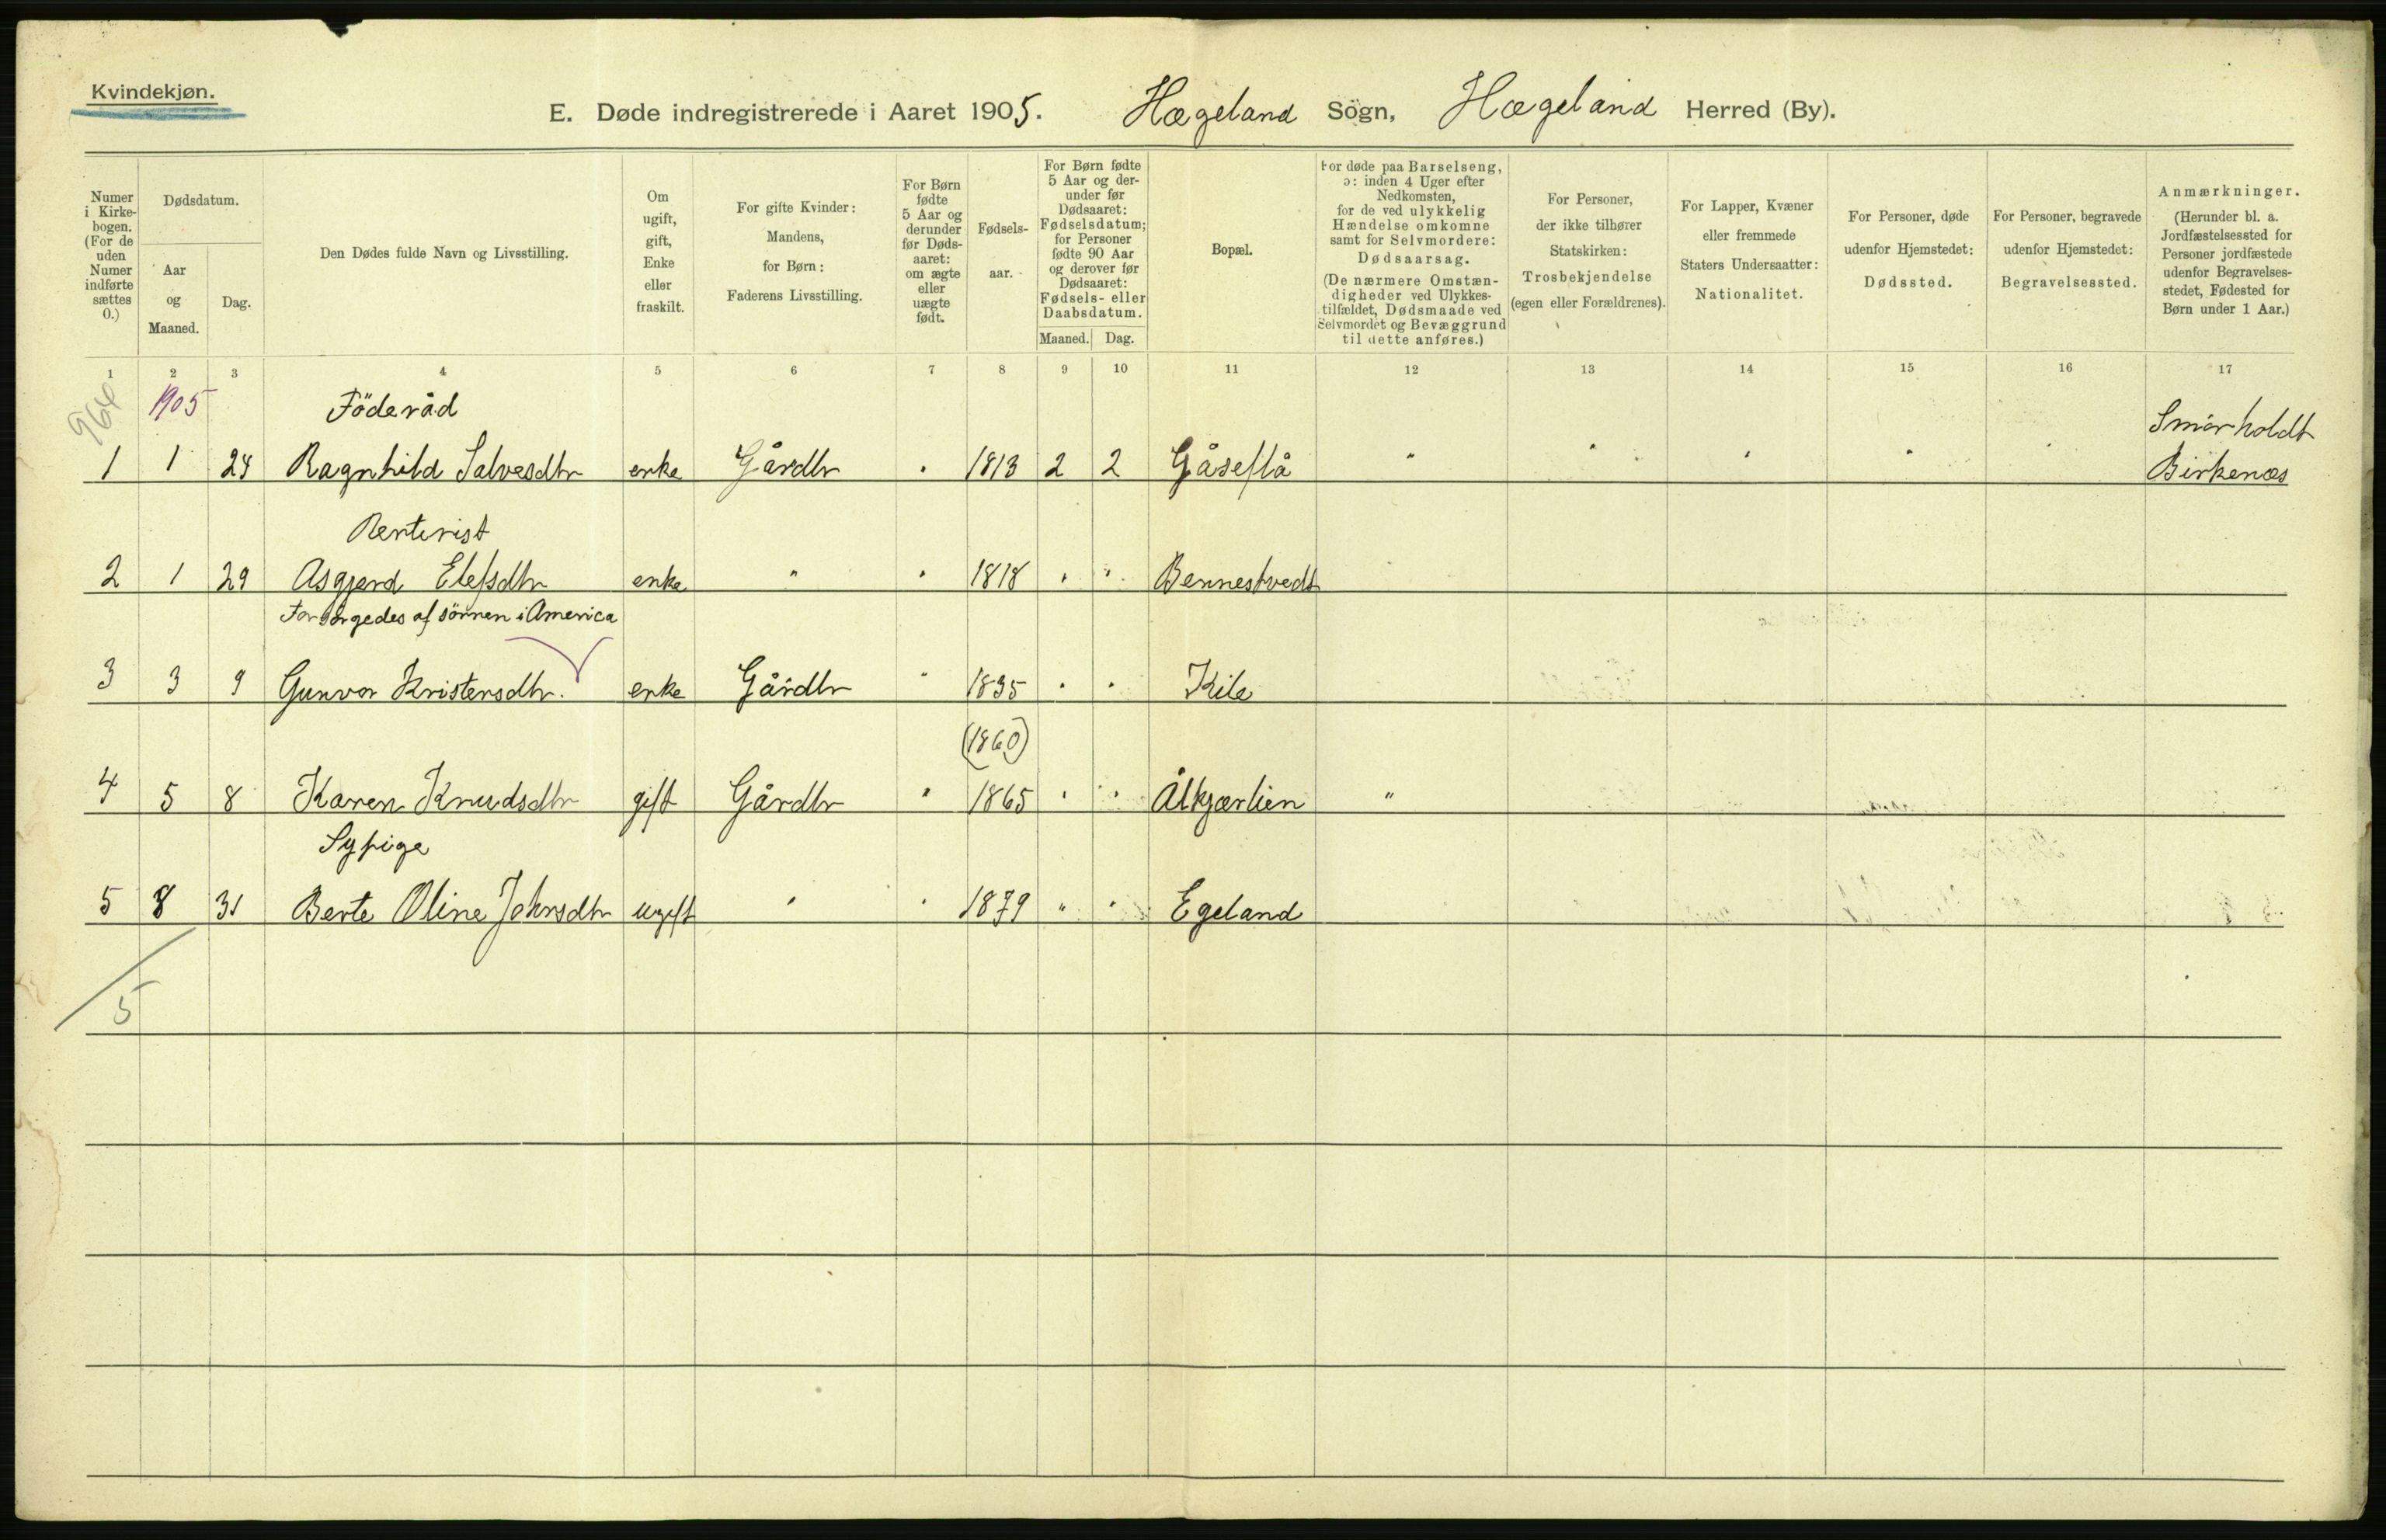 Kvindekjøn.
E. Døde indregistrerede i Aaret 1905. Hægeland Sogn, Hægeland Herred (By).
Numer i Kirkebogen. (For de uden Numer indførte sættes 0.)
Dødsdatum.
Aar og Maaned.
Dag.
Den Dødes fulde Navn og Livsstilling.
Om ugift, gift, Enke eller fraskilt.
For gifte Kvinder: Mandens, for Børn: Faderens Livsstilling.
For Børn fødte 5 Aar og derunder før Dødsaaret: om ægte eller uægte født.
Fødselsaar.
For Børn fødte 5 Aar og derunder før Dødsaaret: Fødselsdatum; for Personer fødte 90 Aar og derover før Dødsaaret: Fødsels- eller Daabsdatum.
Maaned. Dag.
Bopæl.
For døde paa Barselseng, ɔ: inden 4 Uger efter Nedkomsten, for de ved ulykkelig Hændelse omkomne samt for Selvmordere: Dødsaarsag. (De nærmere Omstændigheder ved Ulykkestilfældet, Dødsmaade ved Selvmordet og Bevæggrund til dette anføres.)
For Personer, der ikke tilhører Statskirken: Trosbekjendelse (egen eller Forældrenes).
For Lapper, Kvæner eller fremmede Staters Undersaatter: Nationalitet.
For Personer, døde udenfor Hjemstedet: Dødssted.
For Personer, begravede udenfor Hjemstedet: Begravelsessted.
Anmærkninger. (Herunder bl. a. Jordfæstelsessted for Personer jordfæstede udenfor Begravelsesstedet, Fødested for Børn under 1 Aar.)
1 2 3 4 5 6 7 8 9 10 11 12 13 14 15 16 17
964 1905 Föderåd Smörholdt
1 1 24 Ragnhild Salvesdtr enke Gårdbr " 1813 2 2 Gåseflå " " " " " Birkenæs
Renterist
2 1 29 Asgjerd Elefsdtr enke " " 1818 " " Bennestvedt
Forsörgedes af sönnen i America
3 3 9 Gunvor Kristensdtr. enke Gårdbr " 1835 " " Kile
(1860)
4 5 8 Karen Knudsdtr gift Gårdbr " 1865 " " Ålkjærlien "
Sypige
5 8 31 Berte Oline Johnsdtr ugift " " 1879 " " Egeland
5